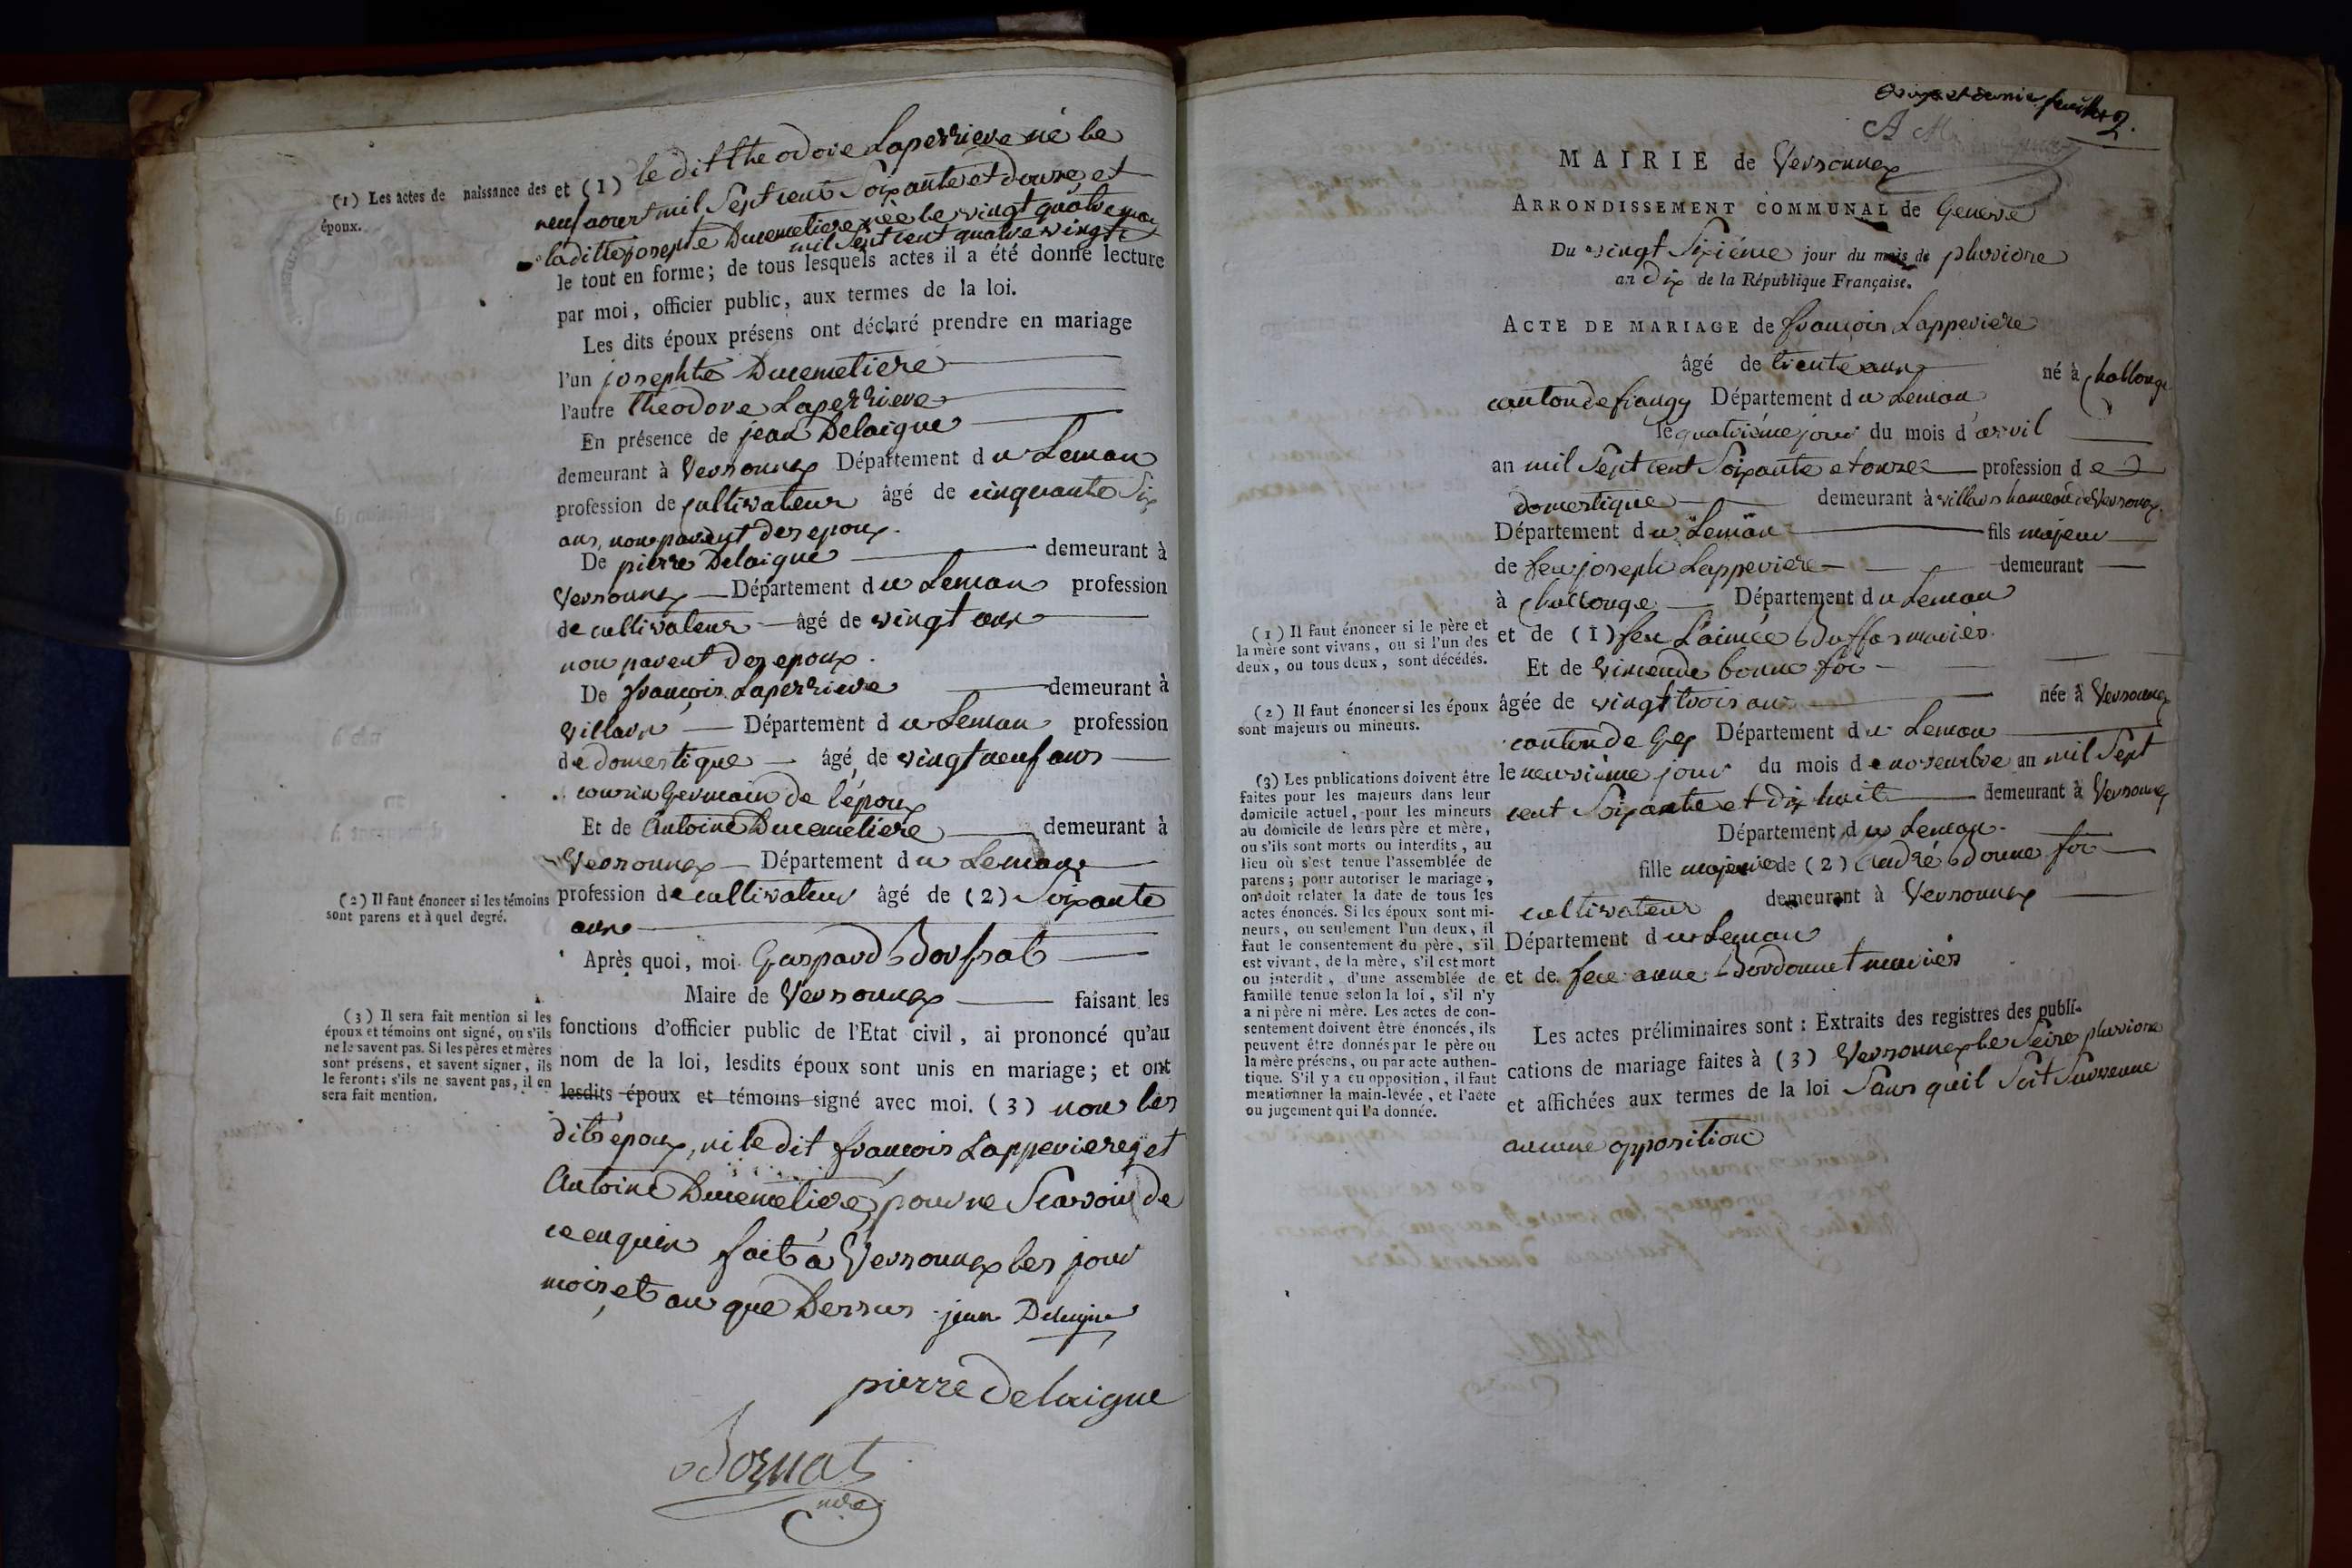 (1) Les actes de naissance des
époux.
et (1) le dit theodore Laperriere né le
neuf aoust mil Sept cent Soixante et douze, et
la ditte josephte Ducemetiere née le vingt quatre mai
mil Sept cent quatre vingt
le tout en forme; de tous lesquels actes il a été donné lecture
par moi, officier public, aux termes de la loi.
Les dits époux présens ont déclaré prendre en mariage
l'un josephte Ducemetiere
l'autre theodore Laperriere
En présence de jean Delaigue
demeurant à Versonnex Département du Leman
profession de cultivateur âgé de cinquante Six
ans, non parent des epoux.
De pierre Delaigue demeurant à
Versonnex Département du Leman profession
de cultivateur âgé de vingt ans
non parent des epoux.
De françois Laperriere demeurant à
Villard Département du Leman profession
de domestique âgé de vingt neuf ans
cousin Germain de l'époux
Et de Antoine Ducemetiere demeurant à
Versonnex Département du Leman
(2) Il faut énoncer si les témoins
sont parens et à quel degré.
profession de cultivateur âgé de (2) Soixante
ans
Après quoi, moi Gaspard
Maire de Versonnex faisant les
(3) Il sera fait mention si les
époux et témoins ont signé, ou s'ils
ne le savent pas. Si les pères et mères
sont présens, et savent signer, ils
le feront; s'ils ne savent pas, il en
sera fait mention.
fonctions d'officier public de l'Etat civil, ai prononcé qu'au
nom de la loi, lesdits époux sont unis en mariage; et ont
lesdits époux et témoins signé avec moi. (3) non les
dits époux, ni le dit françois Lapperiere, et
Antoine Ducemetiere, pour ne Scavoir de
ce enquis fait à Versonnex les jour
mois et an que Dessus jean Delaigue
pierre Delaigue
2.
MAIRIE de Versonnex
ARRONDISSEMENT COMMUNAL de Geneve
Du vingt Sixiéme jour du mois de pluviose
an dix de la République Française.
ACTE DE MARIAGE de françois Lapperiere
âgé de trente ans né à challonge
canton de frangy Département du Leman
le quatriéme jour du mois d'avril
an mil Sept cent Soixante et onze profession de
domestique demeurant à Villard hameau de Versonnex
Département du Leman fils majeur
de feu joseph Lapperiere demeurant
à challonge Département du Leman
(1) Il faut énoncer si le père et
la mère sont vivans, ou si l'un des
deux, ou tous deux, sont décédés.
et de (1) feu L'aimée mariés.
Et de bonne foi
(2) Il faut énoncer si les époux
sont majeurs ou mineurs.
âgée de vingt trois ans née à Versonnex
canton de Gex Département du Leman
le neuviéme jour du mois de novembre an mil Sept
cent Soixante et dix huit demeurant à Versonnex
Département du Leman
fille majeure de (2) André Bonne foi
cultivateur demeurant à Versonnex
Département du Leman
et de feue anne Bordonnet mariés
(3) Les publications doivent être
faites pour les majeurs dans leur
domicile actuel, pour les mineurs
au domicile de leurs père et mère,
ou s'ils sont morts ou interdits, au
lieu où s'est tenue l'assemblée de
parens; pour autoriser le mariage,
on doit relater la date de tous les
actes énoncés. Si les époux sont mi-
neurs, ou seulement l'un deux, il
faut le consentement du père, s'il
est vivant, de la mère, s'il est mort
ou interdit, d'une assemblée de
famille tenue selon la loi, s'il n'y
a ni père ni mère. Les actes de con-
sentement doivent être énoncés, ils
peuvent être donnés par le père ou
la mère présens, ou par acte authen-
tique. S'il y a eu opposition, il faut
mentionner la main-levée, et l'acte
ou jugement qui l'a donnée.
Les actes préliminaires sont : Extraits des registres des publi-
cations de mariage faites à (3) Versonnex le Seize pluviose
et affichées aux termes de la loi Sans qu'il Soit Survenue
aucune opposition